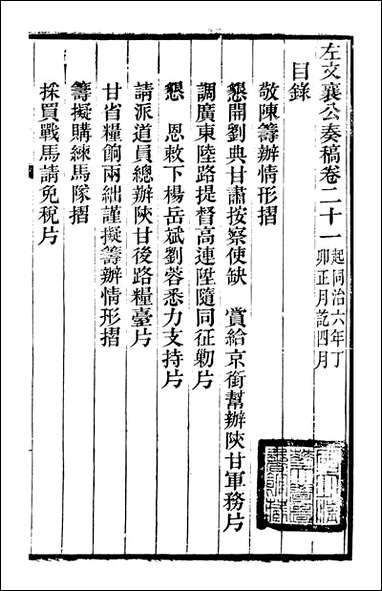 左文襄公奏稿卷二十一
起同治六年丁
卯正月訖四月
目錄
敬陳籌辦情形摺
懇開劉典甘肅按察使缺 賞給京銜幫辦陝甘軍務片
調廣東陸路提督高連陞隨同征勦片
懇 恩敕下楊岳斌劉蓉悉力支持片
請派道員總辦陝甘後路糧臺片
甘省糧餉兩絀謹擬籌辦情形摺
籌擬購練馬隊摺
採買戰馬請免稅片